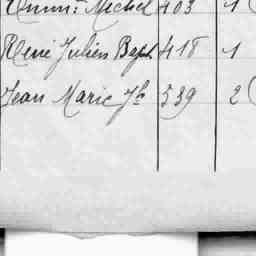 Michel 403 1
René Julien Bapt. 418 1
Jean Marie Jh 539 2